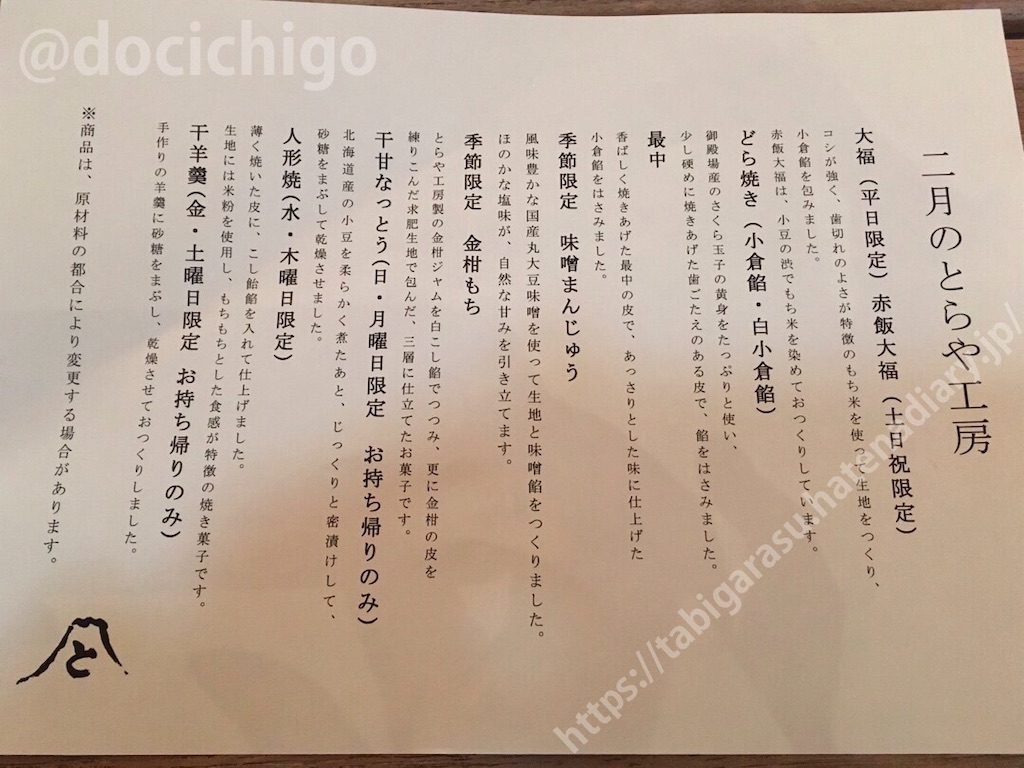 @docichigo
二月のとらや工房
大福（平日限定）赤飯大福（土日祝限定）
コシが強く、歯切れのよさが特徴のもち米を使って生地をつくり、
小倉餡を包みました。
赤飯大福は、小豆の渋でもち米を染めておつくりしています。
どら焼き（小倉餡・白小倉餡）
御殿場産のさくら玉子の黄身をたっぷりと使い、
少し硬めに焼きあげた歯ごたえのある皮で、餡をはさみました。
最中
香ばしく焼きあげた最中の皮で、あっさりとした味に仕上げた
小倉餡をはさみました。
季節限定　味噌まんじゅう
風味豊かな国産丸大豆味噌を使って生地と味噌餡をつくりました。
ほのかな塩味が、自然な甘みを引き立てます。
季節限定　金柑もち
とらや工房製の金柑ジャムを白こし餡でつつみ、更に金柑の皮を
練りこんだ求肥生地で包んだ、三層に仕立てたお菓子です。
干甘なっとう（日・月曜日限定　お持ち帰りのみ）
北海道産の小豆を柔らかく煮たあと、じっくりと密漬けして、
砂糖をまぶして乾燥させました。
人形焼（水・木曜日限定）
薄く焼いた皮に、こし飴餡を入れて仕上げました。
生地には米粉を使用し、もちもちとした食感が特徴の焼き菓子です。
干羊羹（金・土曜日限定　お持ち帰りのみ）
手作りの羊羹に砂糖をまぶし、乾燥させておつくりしました。
※商品は、原材料の都合により変更する場合があります。
と
https://tabigarasu.hatenadiary.jp/